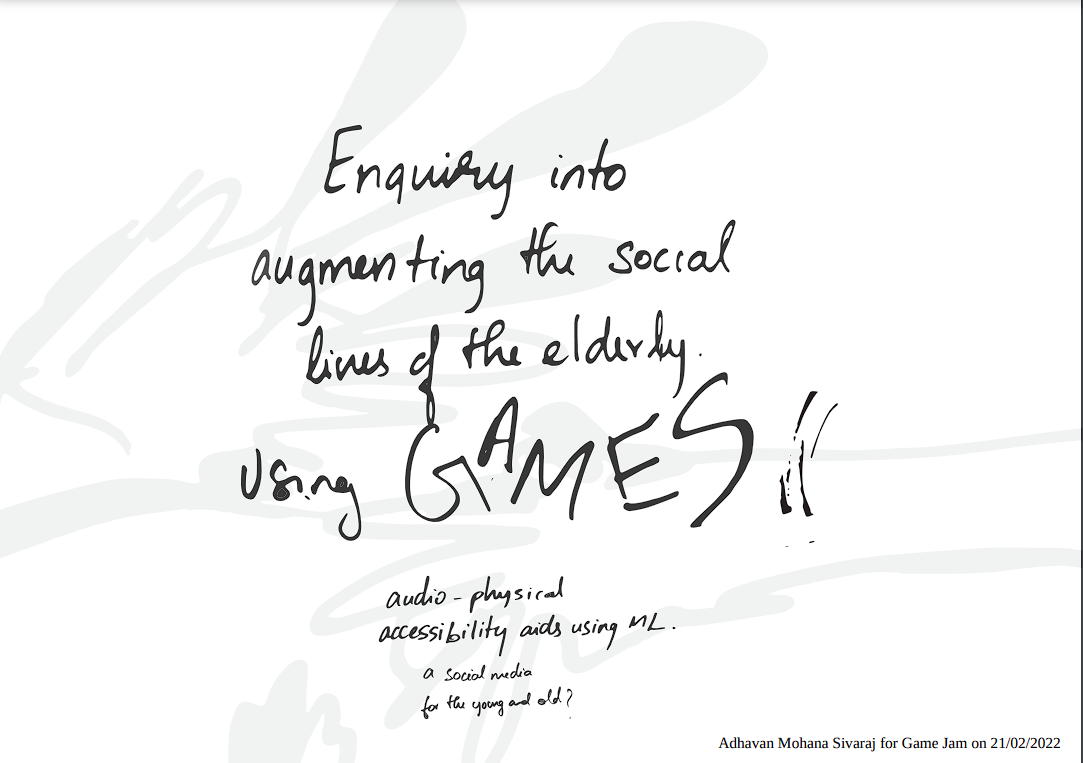 Enquiry into
augmenting the social
lives of the elderly.
using GAMES!!
audio-physical
accessibility aids using ML.
a social media
for the young and old?
Adhavan Mohana Sivaraj for Game Jam on 21/02/2022